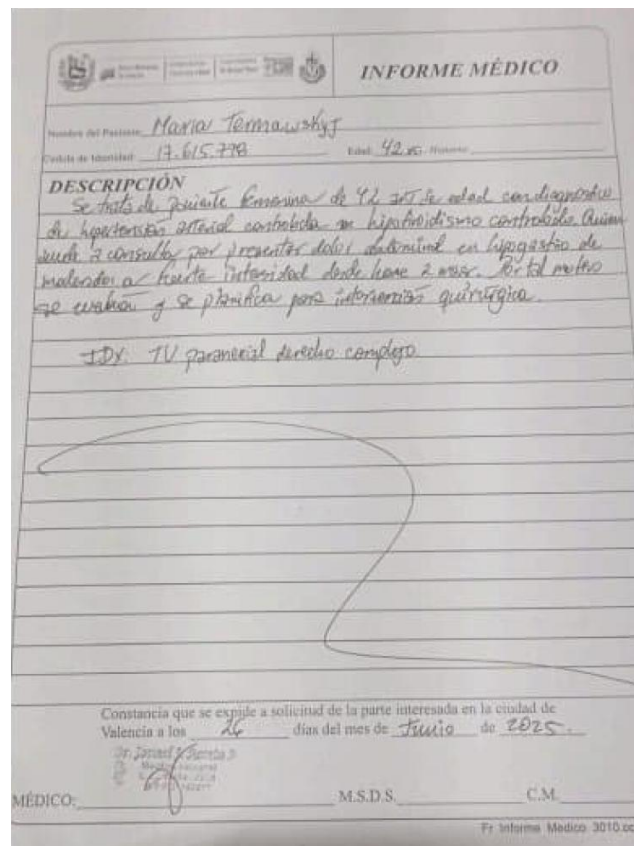 INFORME MÉDICO
Nombre del Paciente María
Cédula de Identidad 17.615.778 Edad 42 Historia
DESCRIPCIÓN
Se trata de paciente femenina de 42 de edad con diagnostico
de hipertensión arterial controlada hipotiroidismo controlado. Quien
acude a consulta por presentar dolor abdominal en hipogastrio de
moderada a fuerte intensidad desde hace 2 meses. Por tal motivo
se evalua y se planifica para intervención quirúrgica.
IDX: TU paranexial derecho complejo
Constancia que se expide a solicitud de la parte interesada en la ciudad de
Valencia a los 26 días del mes de Junio de 2025.
MÉDICO: M.S.D.S. C.M.
Fr Informe Medico 3010